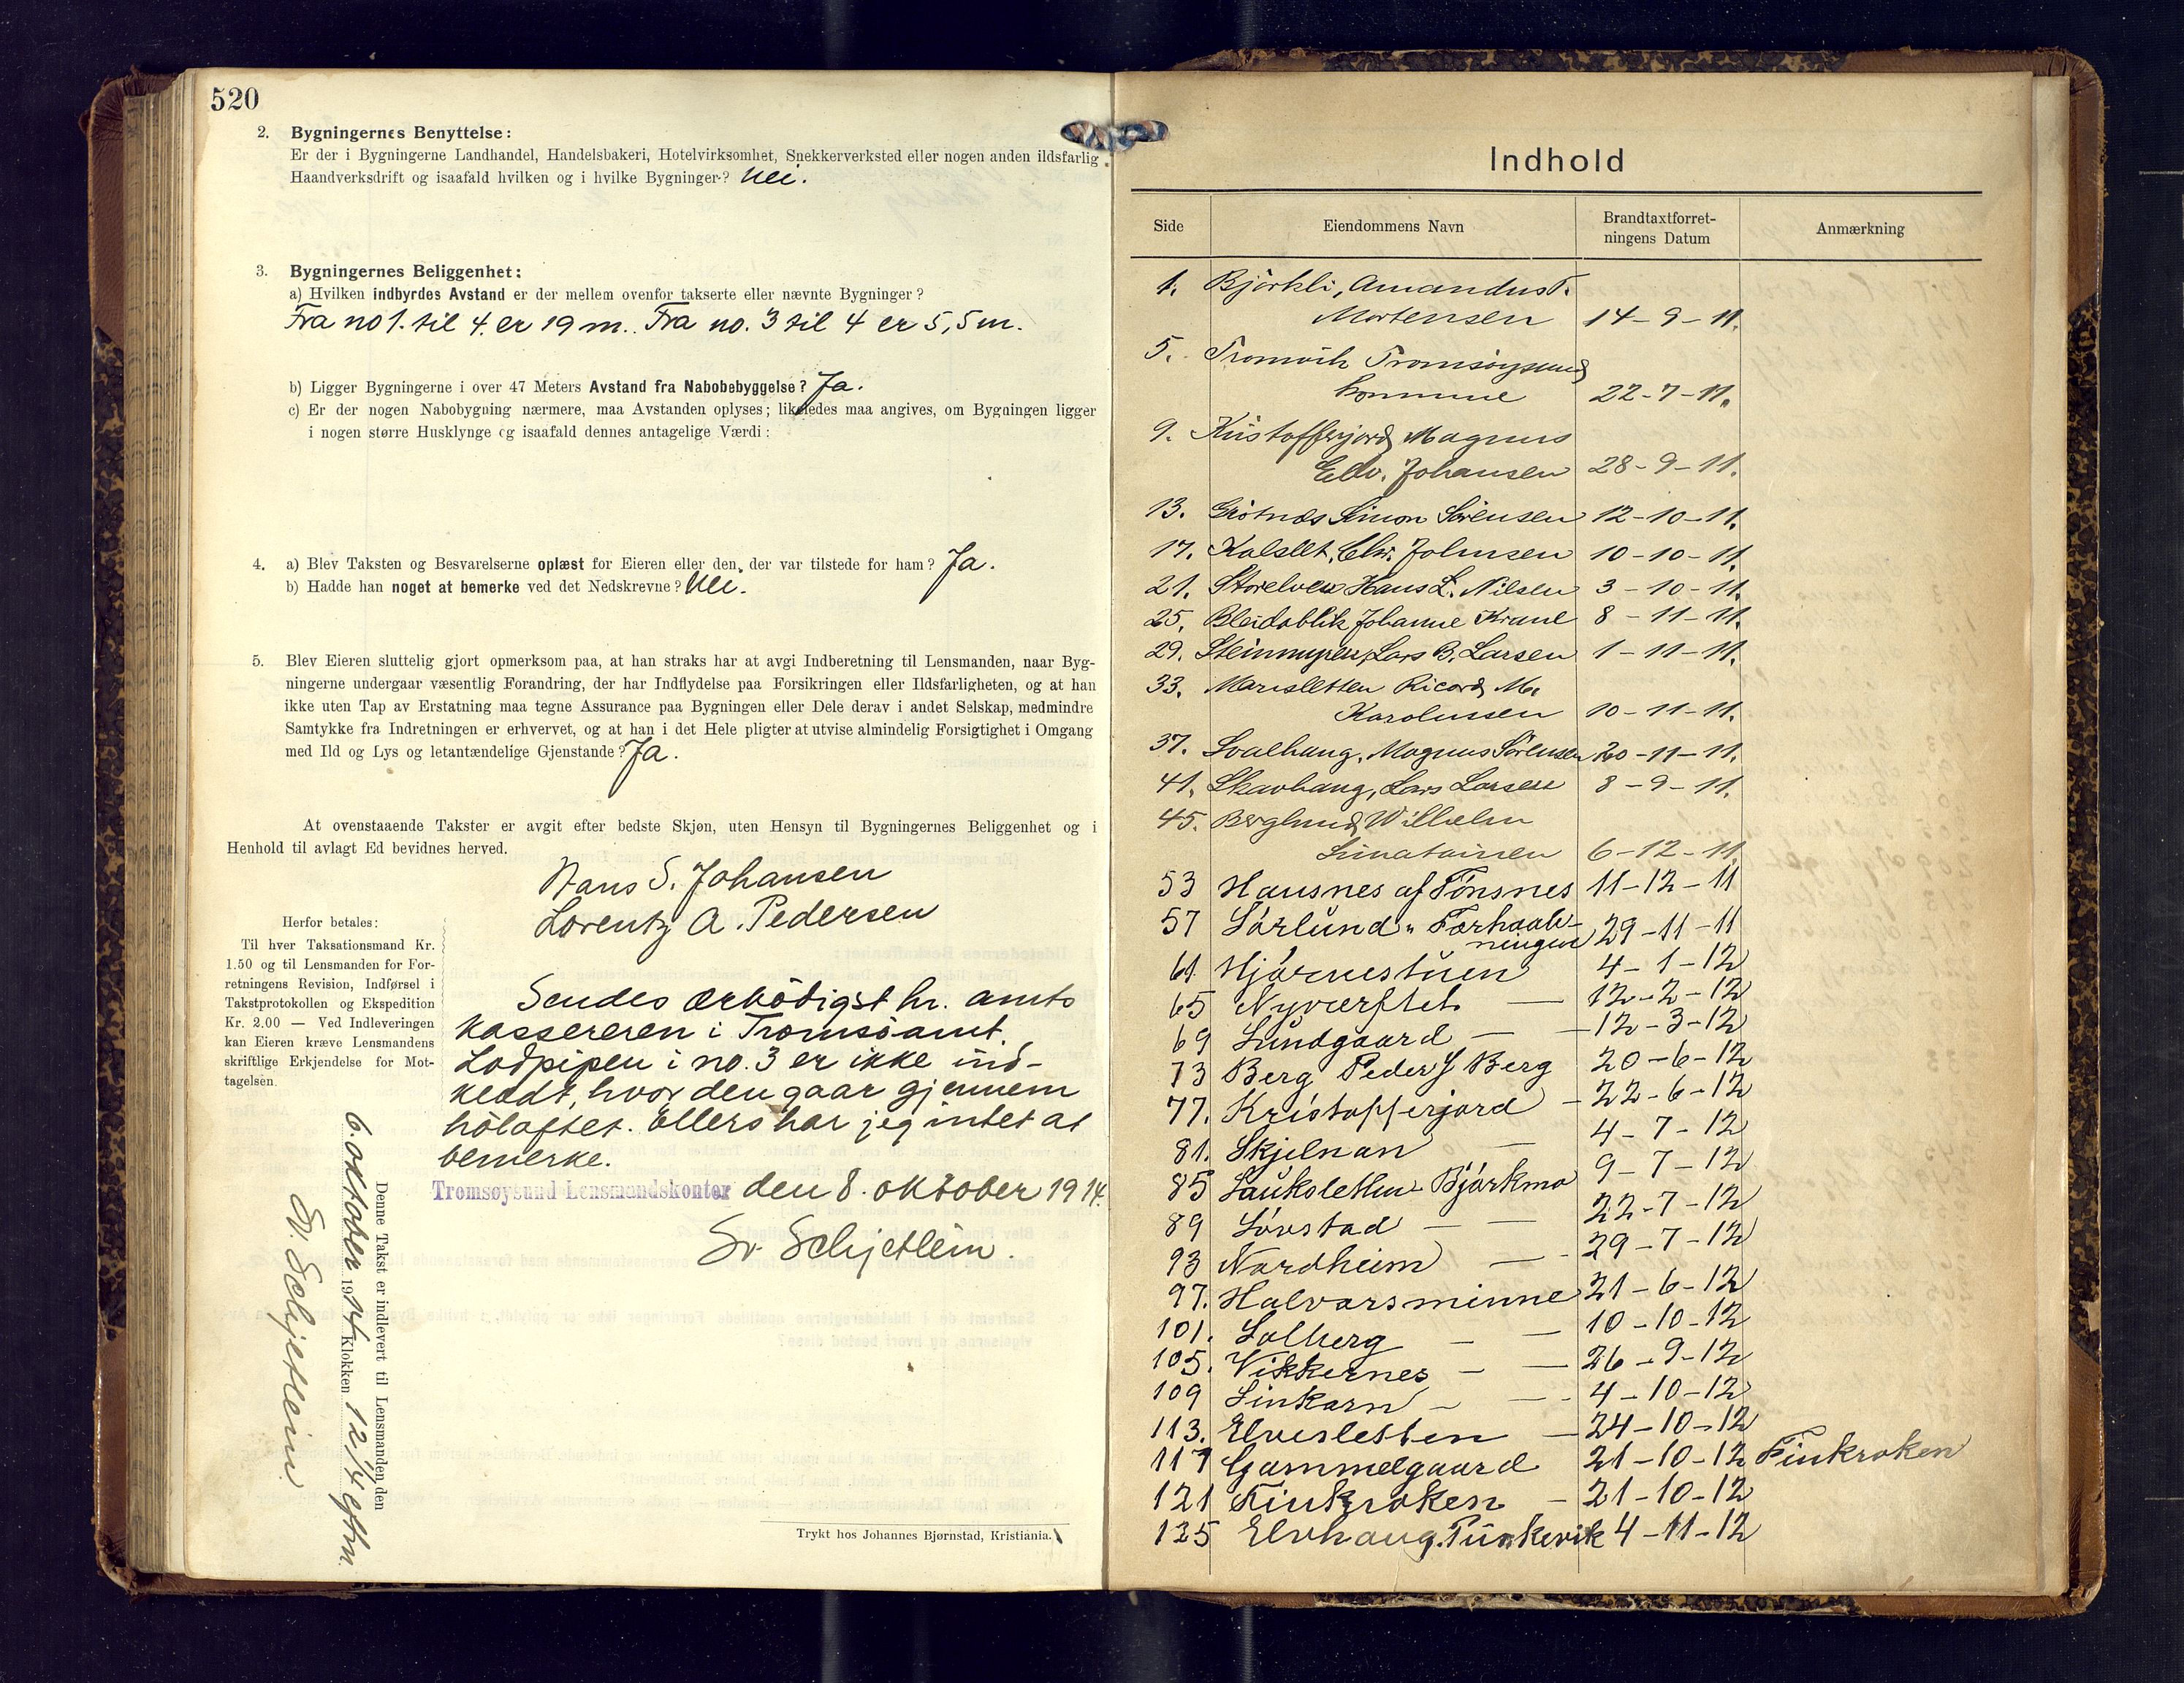 520
2. Bygningernes Benyttelse:
Er der i Bygningerne Landhandel, Handelsbakeri, Hotelvirksomhet, Snekkerverksted eller nogen anden ildsfarlig
Haandverksdrift og isaafald hvilken og i hvilke Bygninger? Nei.
3. Bygningernes Beliggenhet:
a) Hvilken indbyrdes Avstand er der mellem ovenfor takserte eller nævnte Bygninger?
Fra no 1. til 4. er 19 m. Fra no. 3 til 4 er 5,5 m.
b) Ligger Bygningerne i over 47 Meters Avstand fra Nabobebyggelse? Ja.
c) Er der nogen Nabobygning nærmere, maa Avstanden oplyses; likeledes maa angives, om Bygningen ligger
i nogen større Husklynge og isaafald dennes antagelige Værdi:
4. a) Blev Taksten og Besvarelserne oplæst for Eieren eller den, der var tilstede for ham? Ja.
b) Hadde han noget at bemerke ved det Nedskrevne? Nei.
5. Blev Eieren sluttelig gjort opmerksom paa, at han straks har at avgi Indberetning til Lensmanden, naar Byg-
ningerne undergaar væsentlig Forandring, der har Indflydelse paa Forsikringen eller Ildsfarligheten, og at han
ikke uten Tap av Erstatning maa tegne Assurance paa Bygningen eller Dele derav i andet Selskap, medmindre
Samtykke fra Indretningen er erhvervet, og at han i det Hele pligter at utvise almindelig Forsigtighet i Omgang
med Ild og Lys og letantændelige Gjenstande? Ja.
At ovenstaaende Takster er avgit efter bedste Skjøn, uten Hensyn til Bygningernes Beliggenhet og i
Henhold til avlagt Ed bevidnes herved.
Hans S. Johansen
Lorentz A. Pedersen
Herfor betales:
Til hver Taksationsmand Kr.
1.50 og til Lensmanden for For-
retningens Revision, Indførsel i
Takstprotokollen og Ekspedition
Kr. 2.00 — Ved Indleveringen
kan Eieren kræve Lensmandens
skriftlige Erkjendelse for Mot-
tagelsen.
Sendes ærbödigst hr. amts
kassereren i Tromsö amt.
Lodpipen i no. 3 er ikke ind-
klædt, hvor den gaar gjennem
hölaftet. Ellers har jeg intet at
bemerke.
Tromsøysund Lensmandskontor den 8. oktober 1914.
Sv. Schjetlein.
Denne Takst er indlevert til Lensmanden den
6. oktober 1914 Klokken 12 1/4 eftm.
Sv. Schjetlein.
Trykt hos Johannes Bjørnstad, Kristiania.
Indhold
Side Eiendommens Navn Brandtaxtforret-
ningens Datum Anmærkning
1. Björkli, Amandus T.
Mortensen 14-9-11.
5. Tromvik Tromsöysund
Kommune 22-7-11.
9. Kristofferjord, Magnus
Edv. Johansen 28-9-11.
13. Grötnæs Simon Sörensen 12-10-11.
17. Kalslet, Chr. Johnsen 10-10-11.
21. Storelven Hans L. Nilsen 3-10-11.
25. Bleidablik Johanne Krane 8-11-11.
29. Steinmyren, Lars B. Larsen 1-11-11.
33. Marisletten Ricard M.
Karolussen 10-11-11.
37. Svalhaug, Magnus Sörensen 20-11-11.
41. Skavhaug, Lars Larsen 8-9-11.
45. Berglund, Wilhelm
6-12-11.
53 Hausnes af Tönsnes 11-12-11
57 Sörlund " Forhaab-
ningen 29-11-11
61 Hjörnestuen 4-1-12
65 Nyværftet — 12-2-12
69 Lundgaard — — 12-3-12
73 Berg Peder J Berg 20-6-12
77. Kristofferjord — 22-6-12
81. Skjelnan — 4-7-12
85 Laukslettm Björkmo 9-7-12
89 Lövstad — — 22-7-12
93 Nordheim — 29-7-12
97. Halvarsminne 21-6-12
101. Solberg — — 10-10-12
105. Vikkernes — — 26-9-12
109 Sinkarn — — 4-10-12
113. Elvesletten — 24-10-12
117 Gammelgaard 21-10-12 Finkroken
121 Finkroken — 21-10-12
125 Elvhaug. 4-11-12